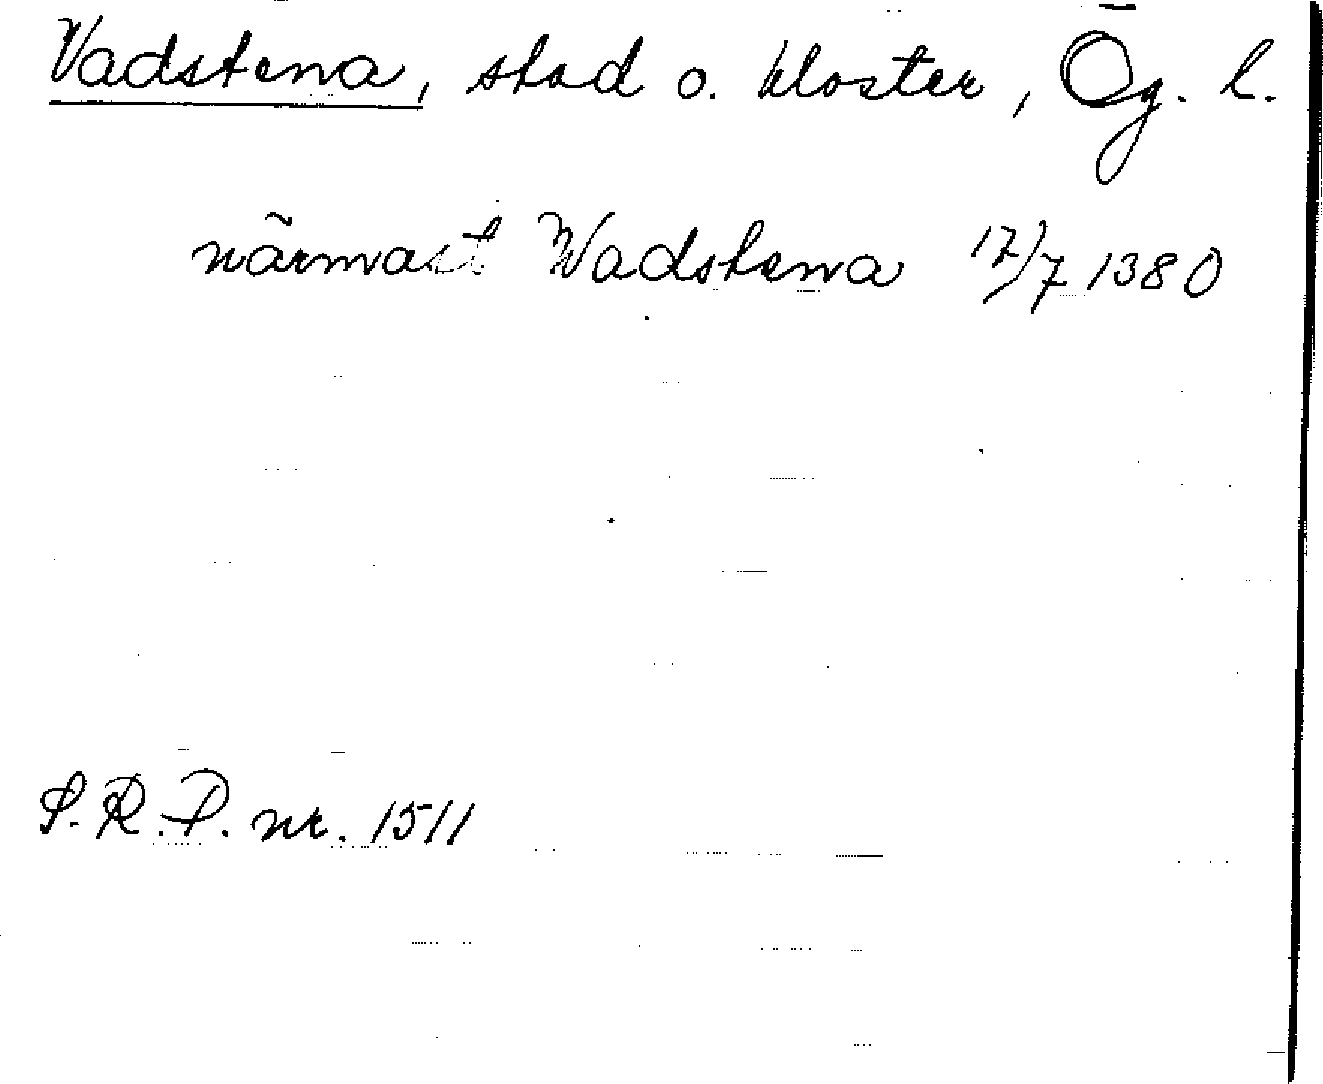 Vadstena, stad o. kloster, Ög. l.
närmast Wadstena 17/7 1380
S.R.P. nr. 1511